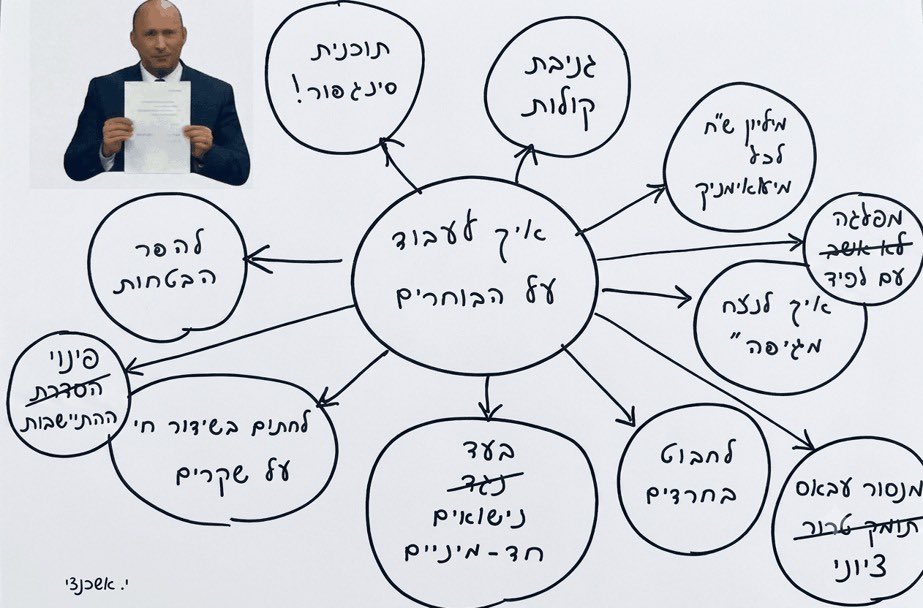 איך לעבוד
על הבוחרים
תוכנית
סינגפור!
גניבת
קולות
מיליון ש"ח
לכל
מפלגה
לא אשב
עם לפיד
איך לנצח
מגיפה"
מנסור עבאס
תומך טרור
ציוני
לחבוט
בחרדים
בעד
נגד
נישואים
חד-מיניים
לחתים בשידור חי
על שקרים
פינוי
הסדרת
ההתיישבות
להפר
הבטחות
י. אשכנזי